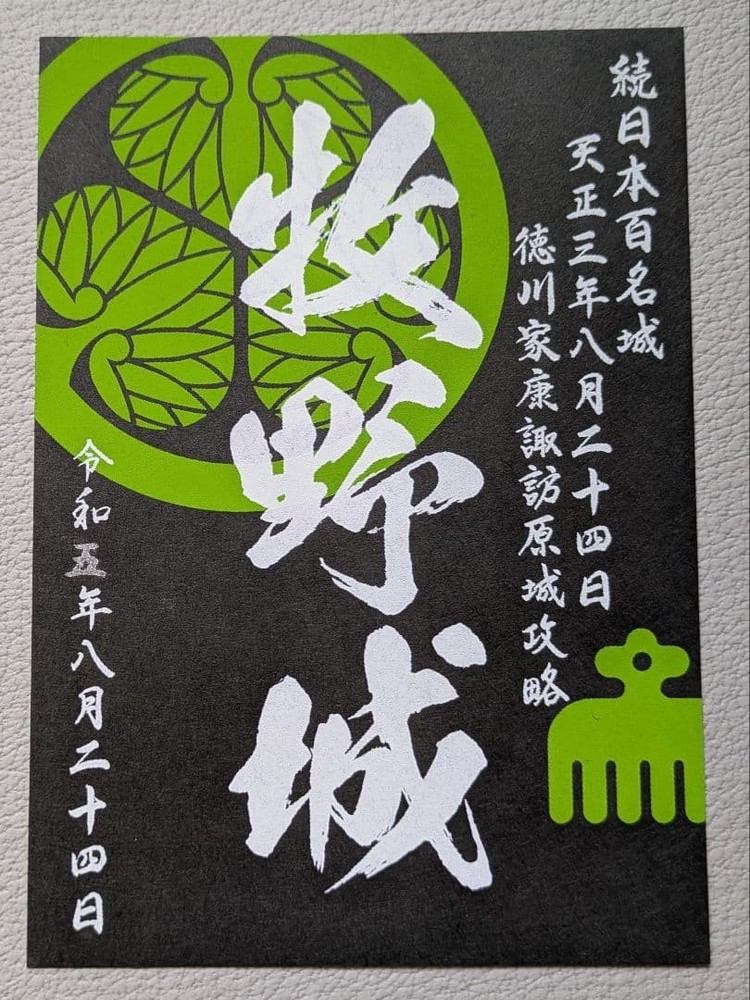 続日本百名城
天正三年八月二十四日
徳川家康諏訪原城攻略
牧野城
令和五年八月二十四日